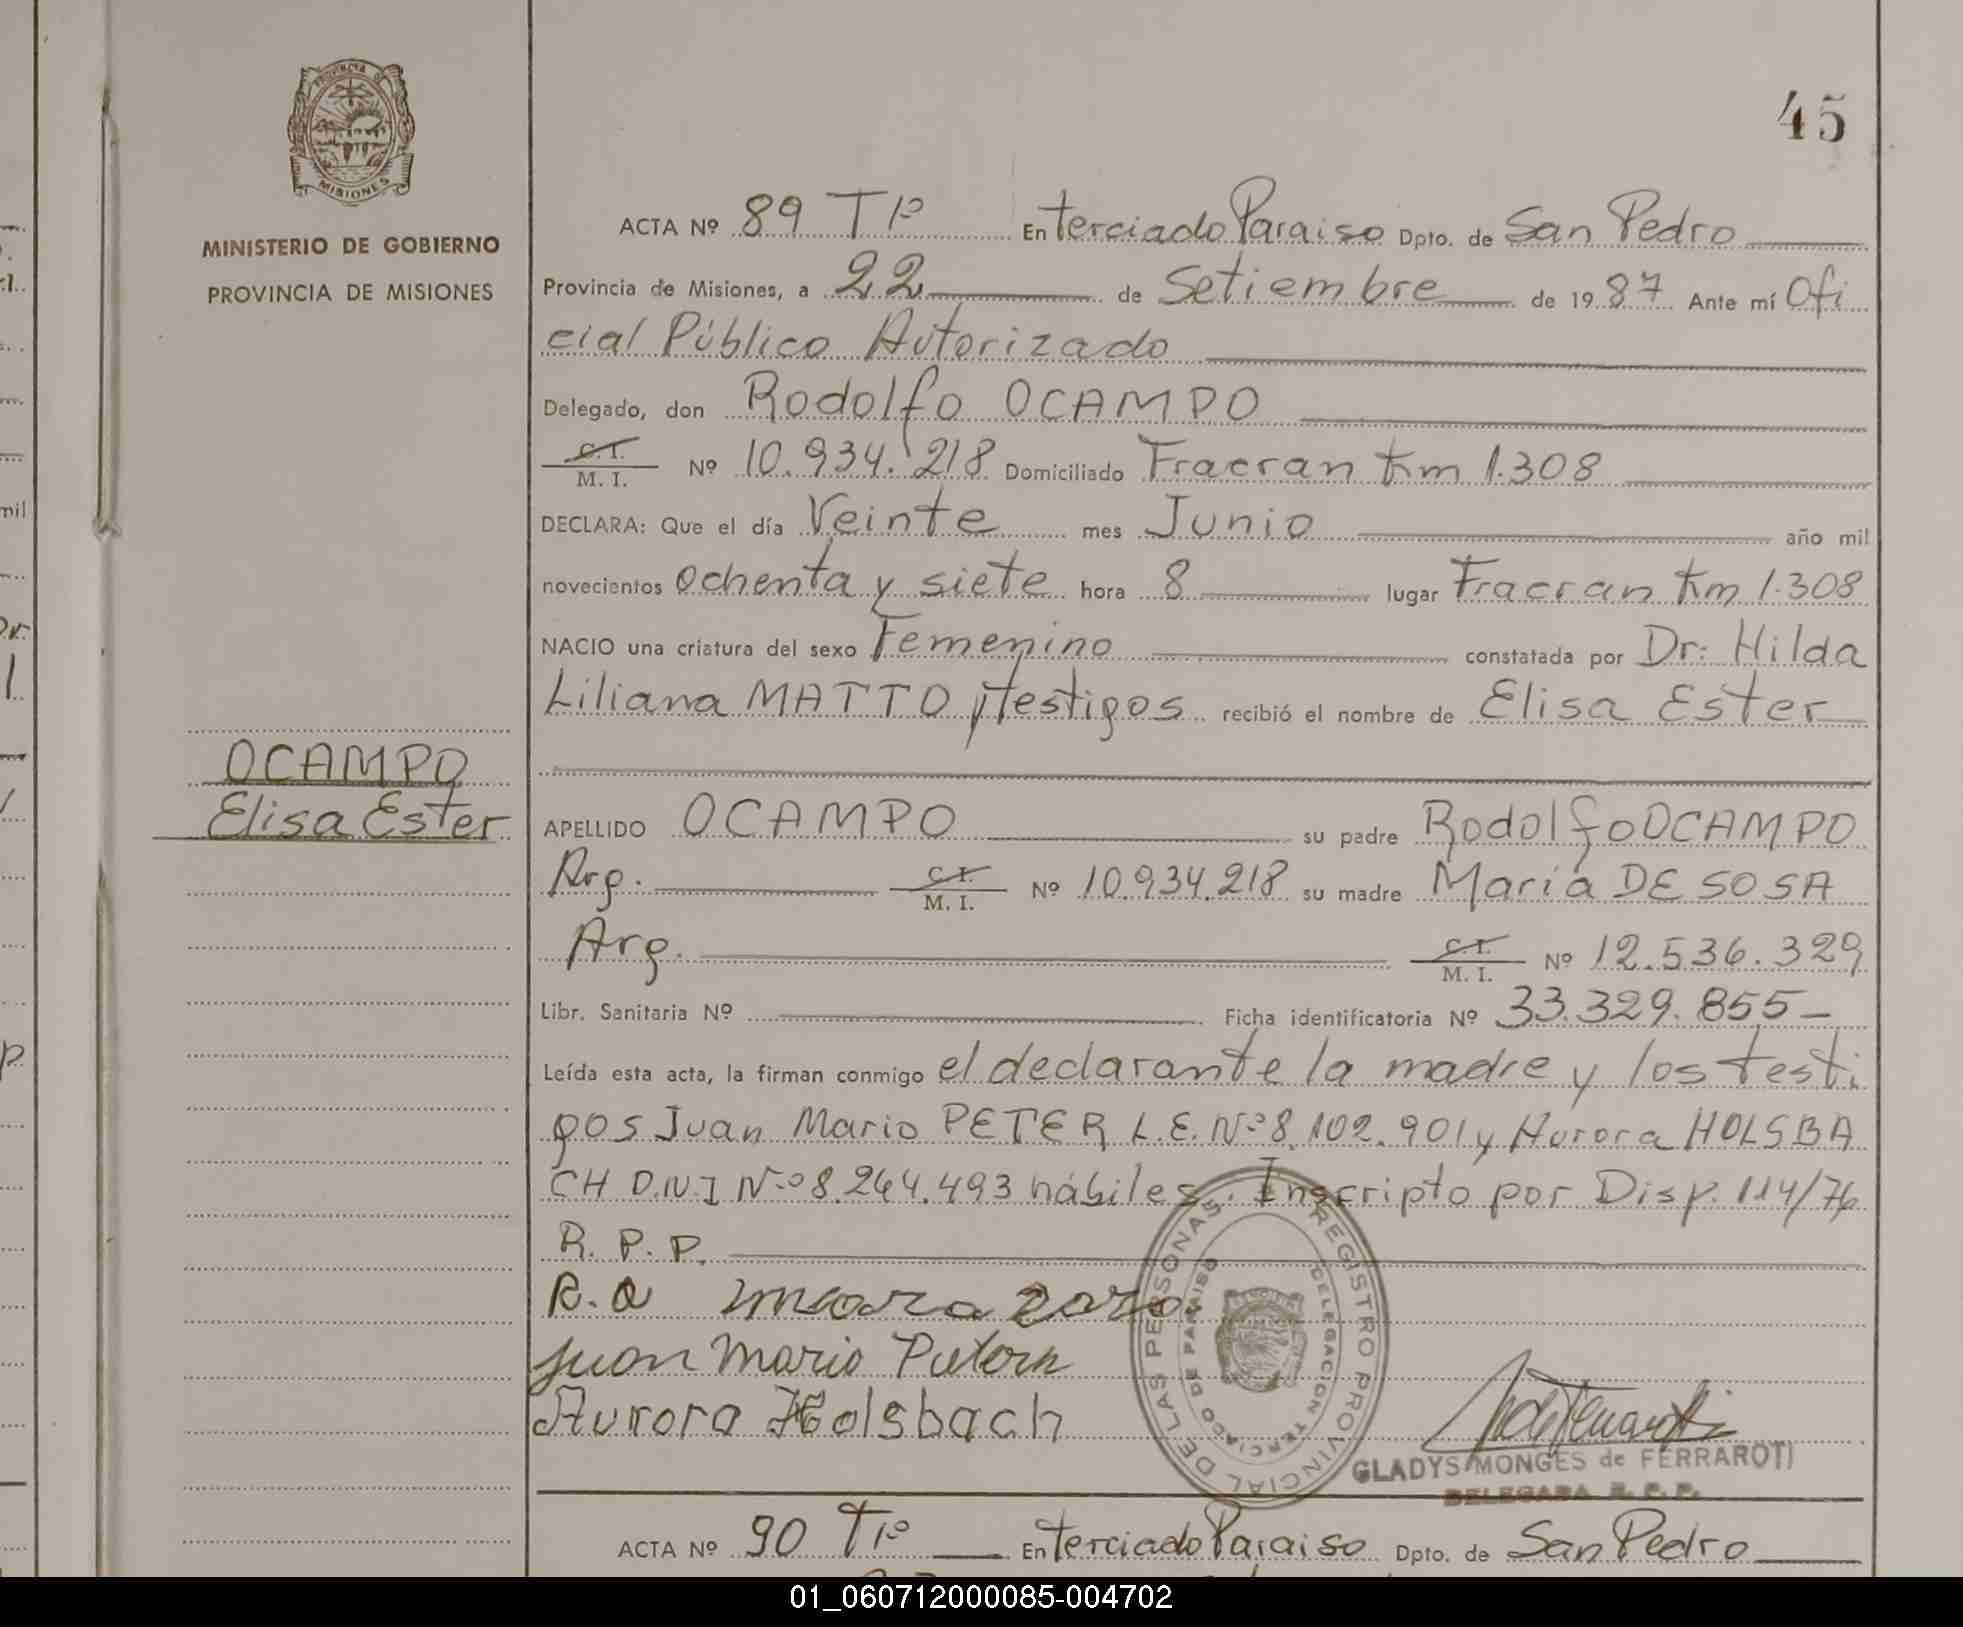 45
PROVINCIA DE
MISIONES
MINISTERIO DE GOBIERNO
PROVINCIA DE MISIONES
OCAMPO
Elisa Ester
ACTA Nº 89 Tº En Terciado Paraiso Dpto. de San Pedro
Provincia de Misiones, a 22 de Setiembre de 1987 Ante mí Ofi
cial Público Autorizado
Delegado, don Rodolfo OCAMPO
C.I. M. I. Nº 10.934.218 Domiciliado Fracran Km 1.308
DECLARA: Que el día Veinte mes Junio año mil
novecientos ochenta y siete hora 8 lugar Fracran Km 1.308
NACIO una criatura del sexo Femenino constatada por Dr: Hilda
Liliana MATTO y testigos recibió el nombre de Elisa Ester
APELLIDO OCAMPO su padre Rodolfo OCAMPO
Arg. C.I. M. I. Nº 10.934.218 su madre María DE SOSA
Arg. C.I. M. I. Nº 12.536.329
Libr. Sanitaria Nº Ficha identificatoria Nº 33.329.855-
Leída esta acta, la firman conmigo el declarante la madre y los testi
gos Juan Mario PETER L.E. Nº 8.102.901 y Aurora HOLSBA
CH D.N.I Nº 8.264.493 hábiles. Inscripto por Disp. 114/76
R. P. P.
R. O
Juan Mario
Aurora Holsbach
REGISTRO PROVINCIAL DE LAS PERSONAS
DELEGACION TERCIADO DE PARAISO
GLADYS MONGES de FERRAROTI
DELEGADA R. P. P.
ACTA Nº 90 Tº En Terciado Paraiso Dpto. de San Pedro
01_060712000085-004702